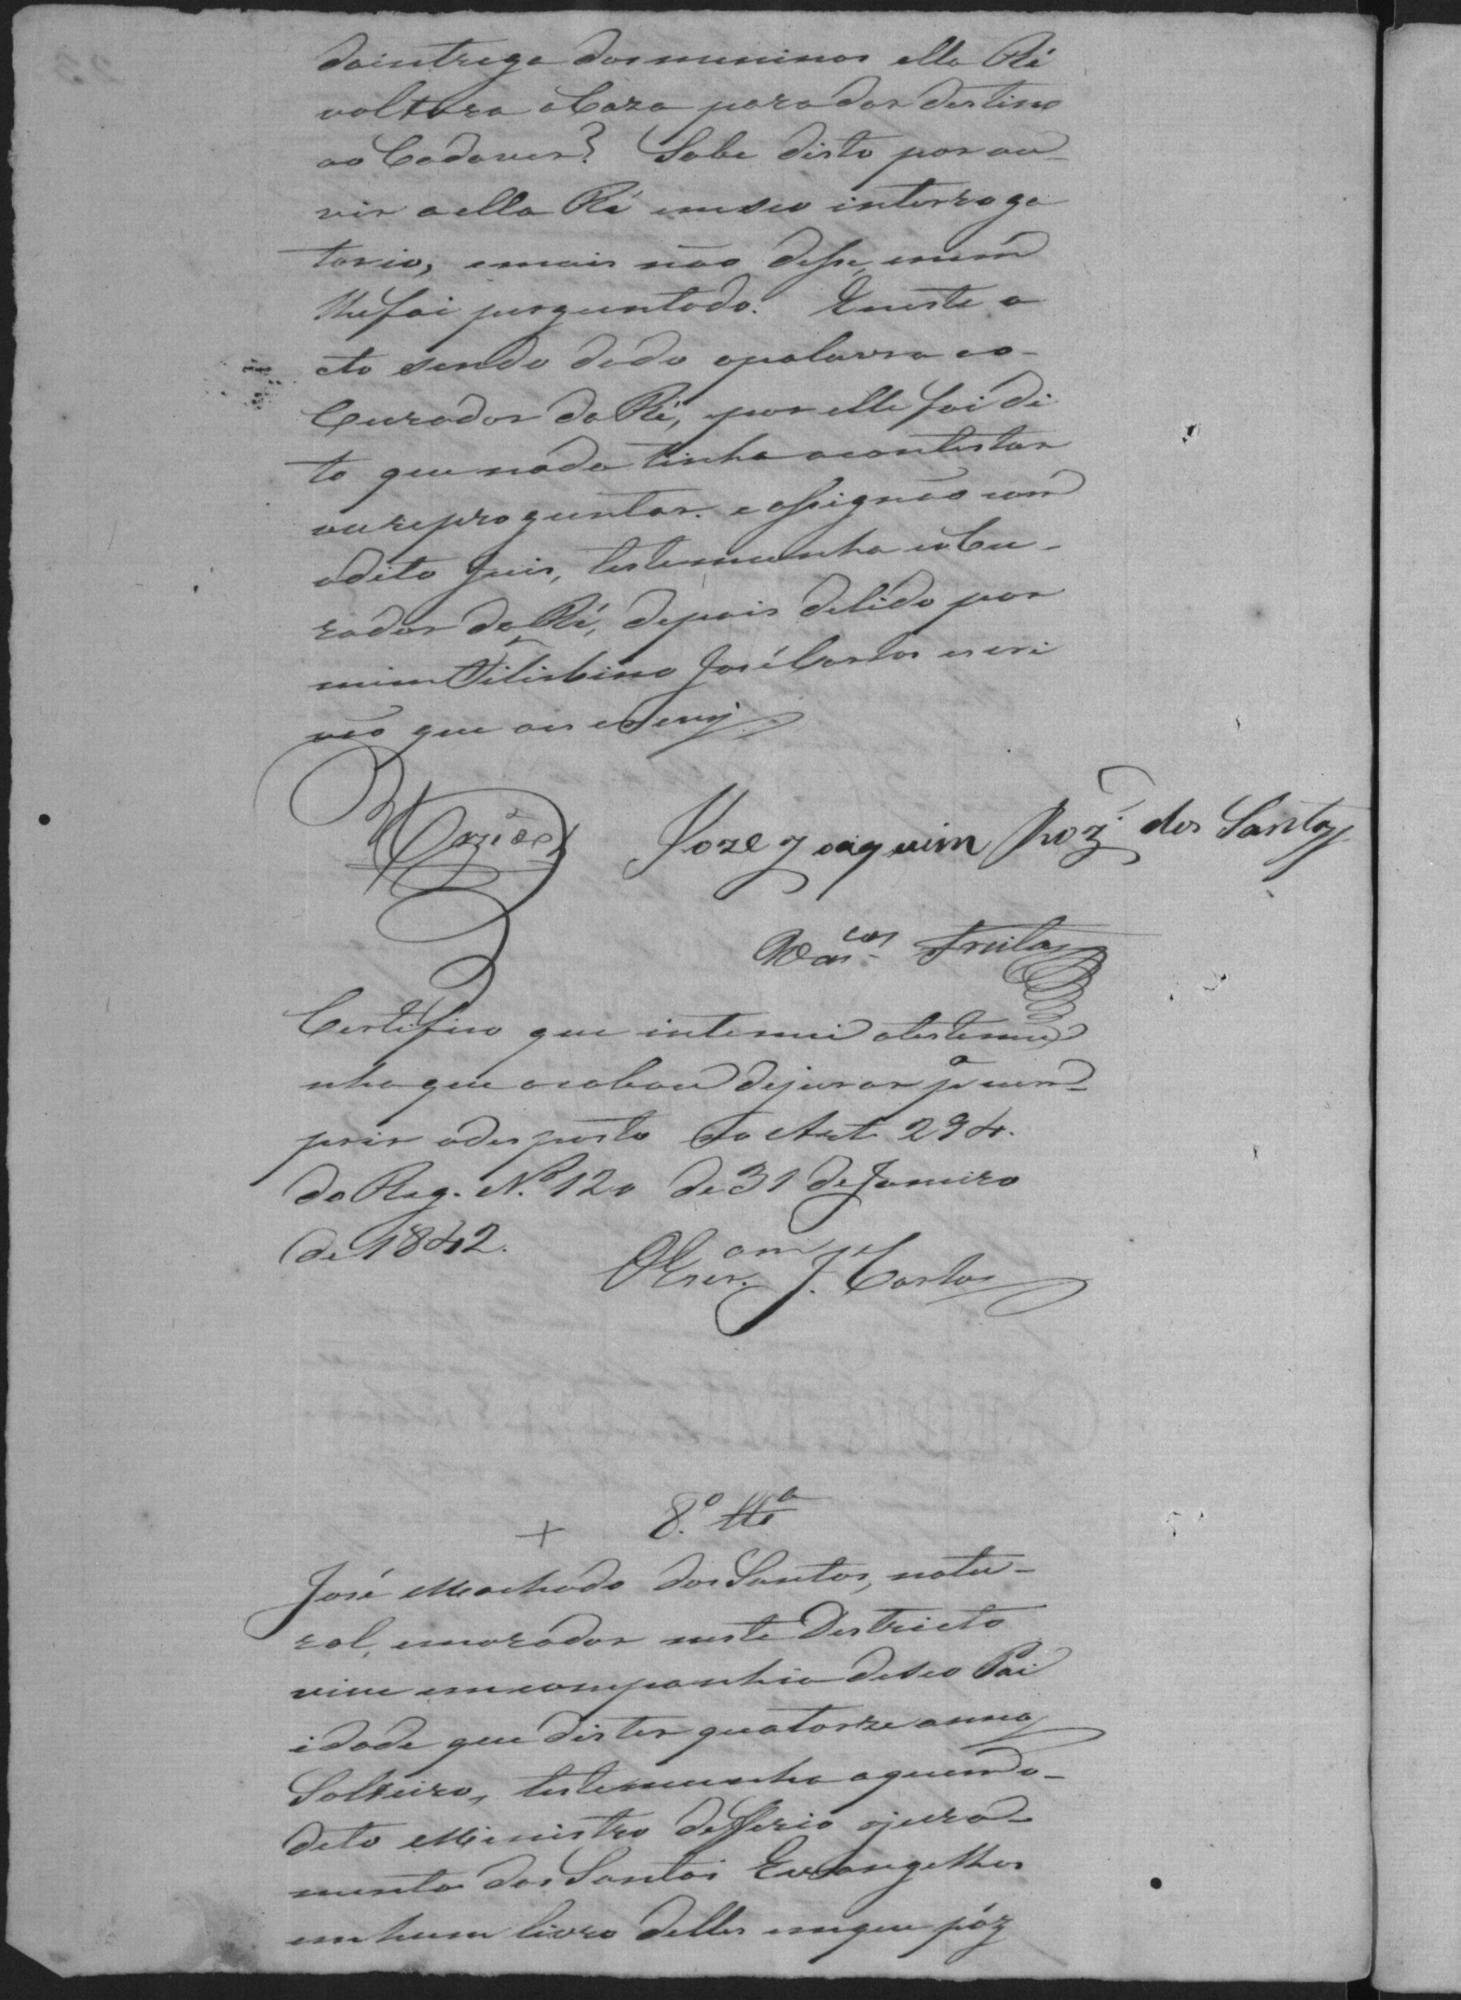 daintrega dos meninos ella Ré
voltara a Caza para dar destino
ao Cadaver? Sabe disto por ou-
vir a ella Ré em seo interroga
torio, emais não disse, nem
lhe foi perguntado. E neste a
cto sendo dada apalavra ao
Curador da Ré, por elle foi di
to que nada tinha acontestar
ou reproguntar. e assignão com
odito Juis, testemunha eo Cu-
rador da Ré, depois delido por
mim José Carlos escri
vão que as escrevy
Joze Joaquim Roz' dos Santos
Vas.cos Freitas
Certifico que intemei atestemu
nha que acabou dejurar pa cum-
prir odesposto no Art. 294.
do Reg. No 120 de 31 de Janeiro
de 1842.
OEscr.am J. Carlos
+ 8.o tta
José Machado dos Santos, natu-
ral, emorador neste Destricto
vive emcompanhia deseo Pai
idade que dis ter quatorze annos
Solteiro, testemunha aquem o-
deto Menistro defferio ojura-
mento dos Santos Evangelhos
em hum livro delles emque pôz